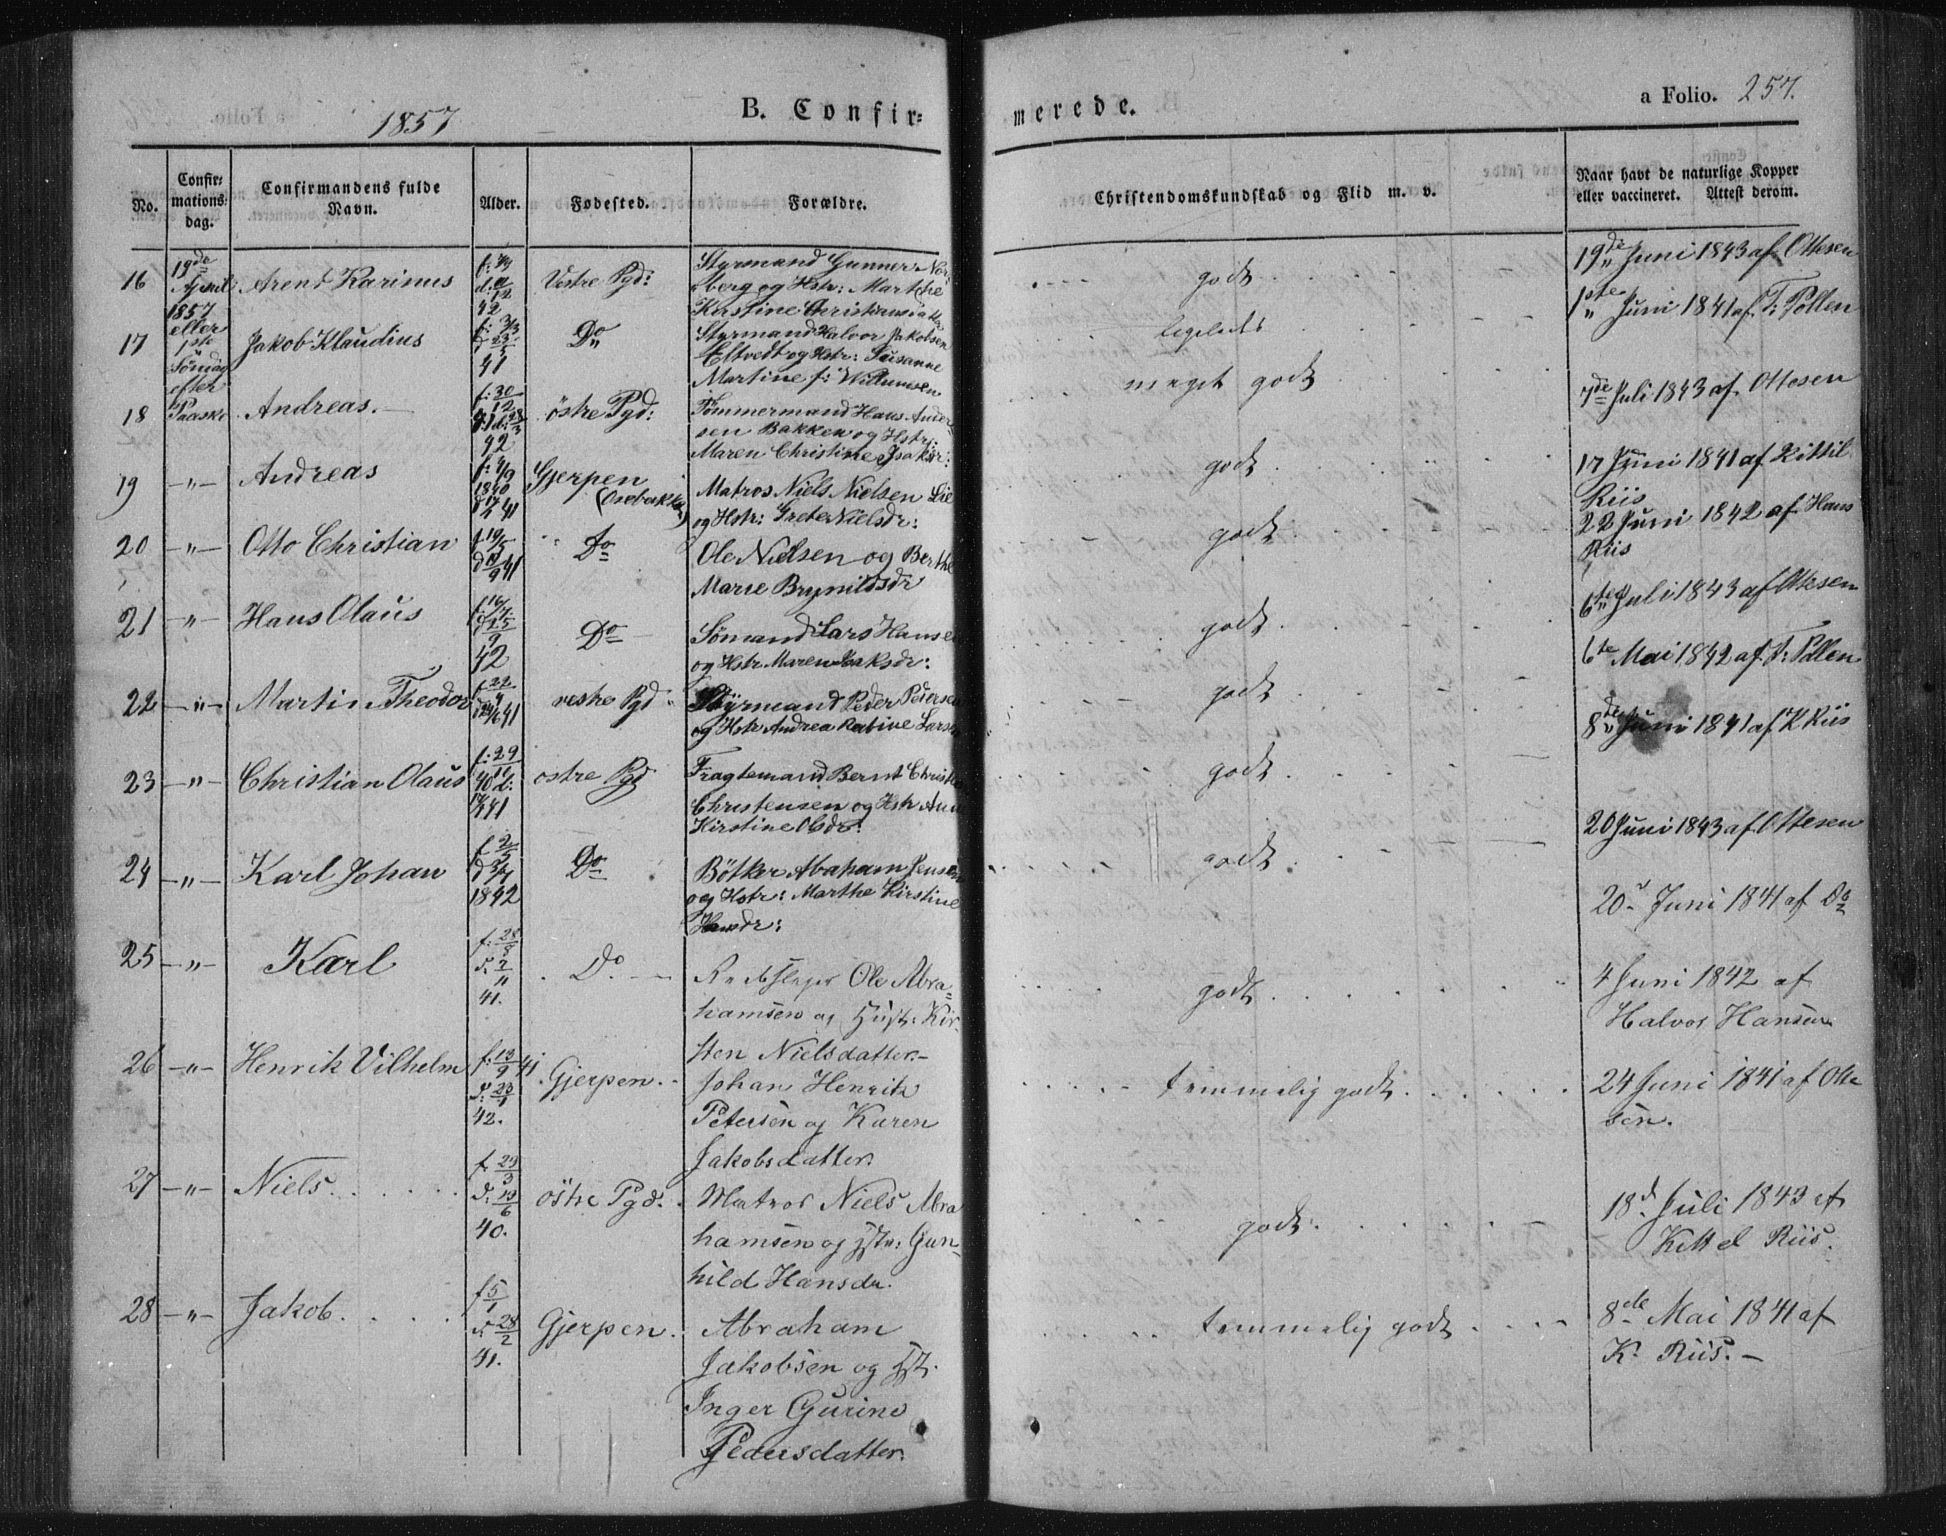 1857
B. Confir=
merede.
a Folio. 257.
No.
Confir=
mations=
dag.
Confirmandens fulde
Navn.
Alder.
Fødested.
Forældre.
Christendomskundskab og Flid m. v.
Naar havt de naturlige Kopper
eller vaccineret. Attest derom.
19de
April
1857
eller
1ste
Søndag
efter
Paaske
16 Arent Karinus
42
Vestre Pgd:
Styrmand Gunner Nor=
berg og Hstr: Marthe
Kirstine Christiansdatter
godt
19de Juni 1843 af Ottesen
17 Jakob Klaudius
41
Do
Styrmand Halvor Jakobsen
Eltvedt og Hstr: Susanne
Martine f: Willumsen
ligeledes
1ste Juni 1841 af T: Pollen
18 Andreas.
f: 30/12
42
östre Pgd:
Tømmermand Hans Ander=
sen Bakken og Hstr:
Maren Christine Isaksdr:
meget godt
7de Juli 1843 af Ottesen
19 —"— Andreas
1840
41
Gjerpen
Matros Niels Nielsen Lie
og Hstr: Grete Nielsdr:
godt
17 Juni 1841 af Kittil
Riis
20 —"— Otto Christian
f 19/5
41
Do
Ole Nielsen og Berthe
Marie Brynildsdr
godt
22 Juni 1842 af Hans
Riis
21 —"— Hans Olaus
42
Do
Sømand Lars Hansen
og Hstr Maren Isaksdr:
godt
6te Juli 1843 af Ottesen
22 —"— Martin Theodor
f 22/4
41
vestre Pgd
Styrmand Peder Petersen
og Hstr Andrea Rabine Larsen
godt
6te Mai 1842 af T: Pollen
23 —"— Christian Olaus
f: 29
40 d:
41
östre Pgd
Fragtemand Bernt Christian
Christensen og Hstr Anne
Kirstine Olsdr:
godt
8de Juni 1841 af K Riis
24 —"— Karl Johan
f 2/5
1842
Do
Bøtker Abaham Jensen
og Hstr: Marthe Kirstine
Hansdr:
godt
20 Juni 1843 af Ottesen
25 —"— Karl
f: 28/8
d: 2/11
41.
Do.
Ole Abra=
hamsen og Hust: Kir=
sten Nielsdatter.—
godt
20d Juni 1841 af Do
26 —"— Henrik Vilhelm
f: 13/9 41
d: 23/1
42.
Gjerpen.
Johan Henrik
Petersen og Karen
Jakobsdatter.
temmelig godt
4 Juni 1842 af
Halvor Hansen
27 —"— Niels.
f. 29/3
d: 19/6
40.
östre Pgd.
Matros Niels Abra
hamsen og Hstr: Gun=
hild Hansdr.
godt.
24 Juni 1841 af Otte
sen.
18d. Juli 1843 af
Kittel Riis.
28 —"— Jakob.
f 5/1
d. 28/2
41.
Gjerpen.
Abraham
Jakobsen og Hst.
Inger Gurine
Pedersdatter.
temmelig godt
8de Mai 1841 af
K. Riis.—